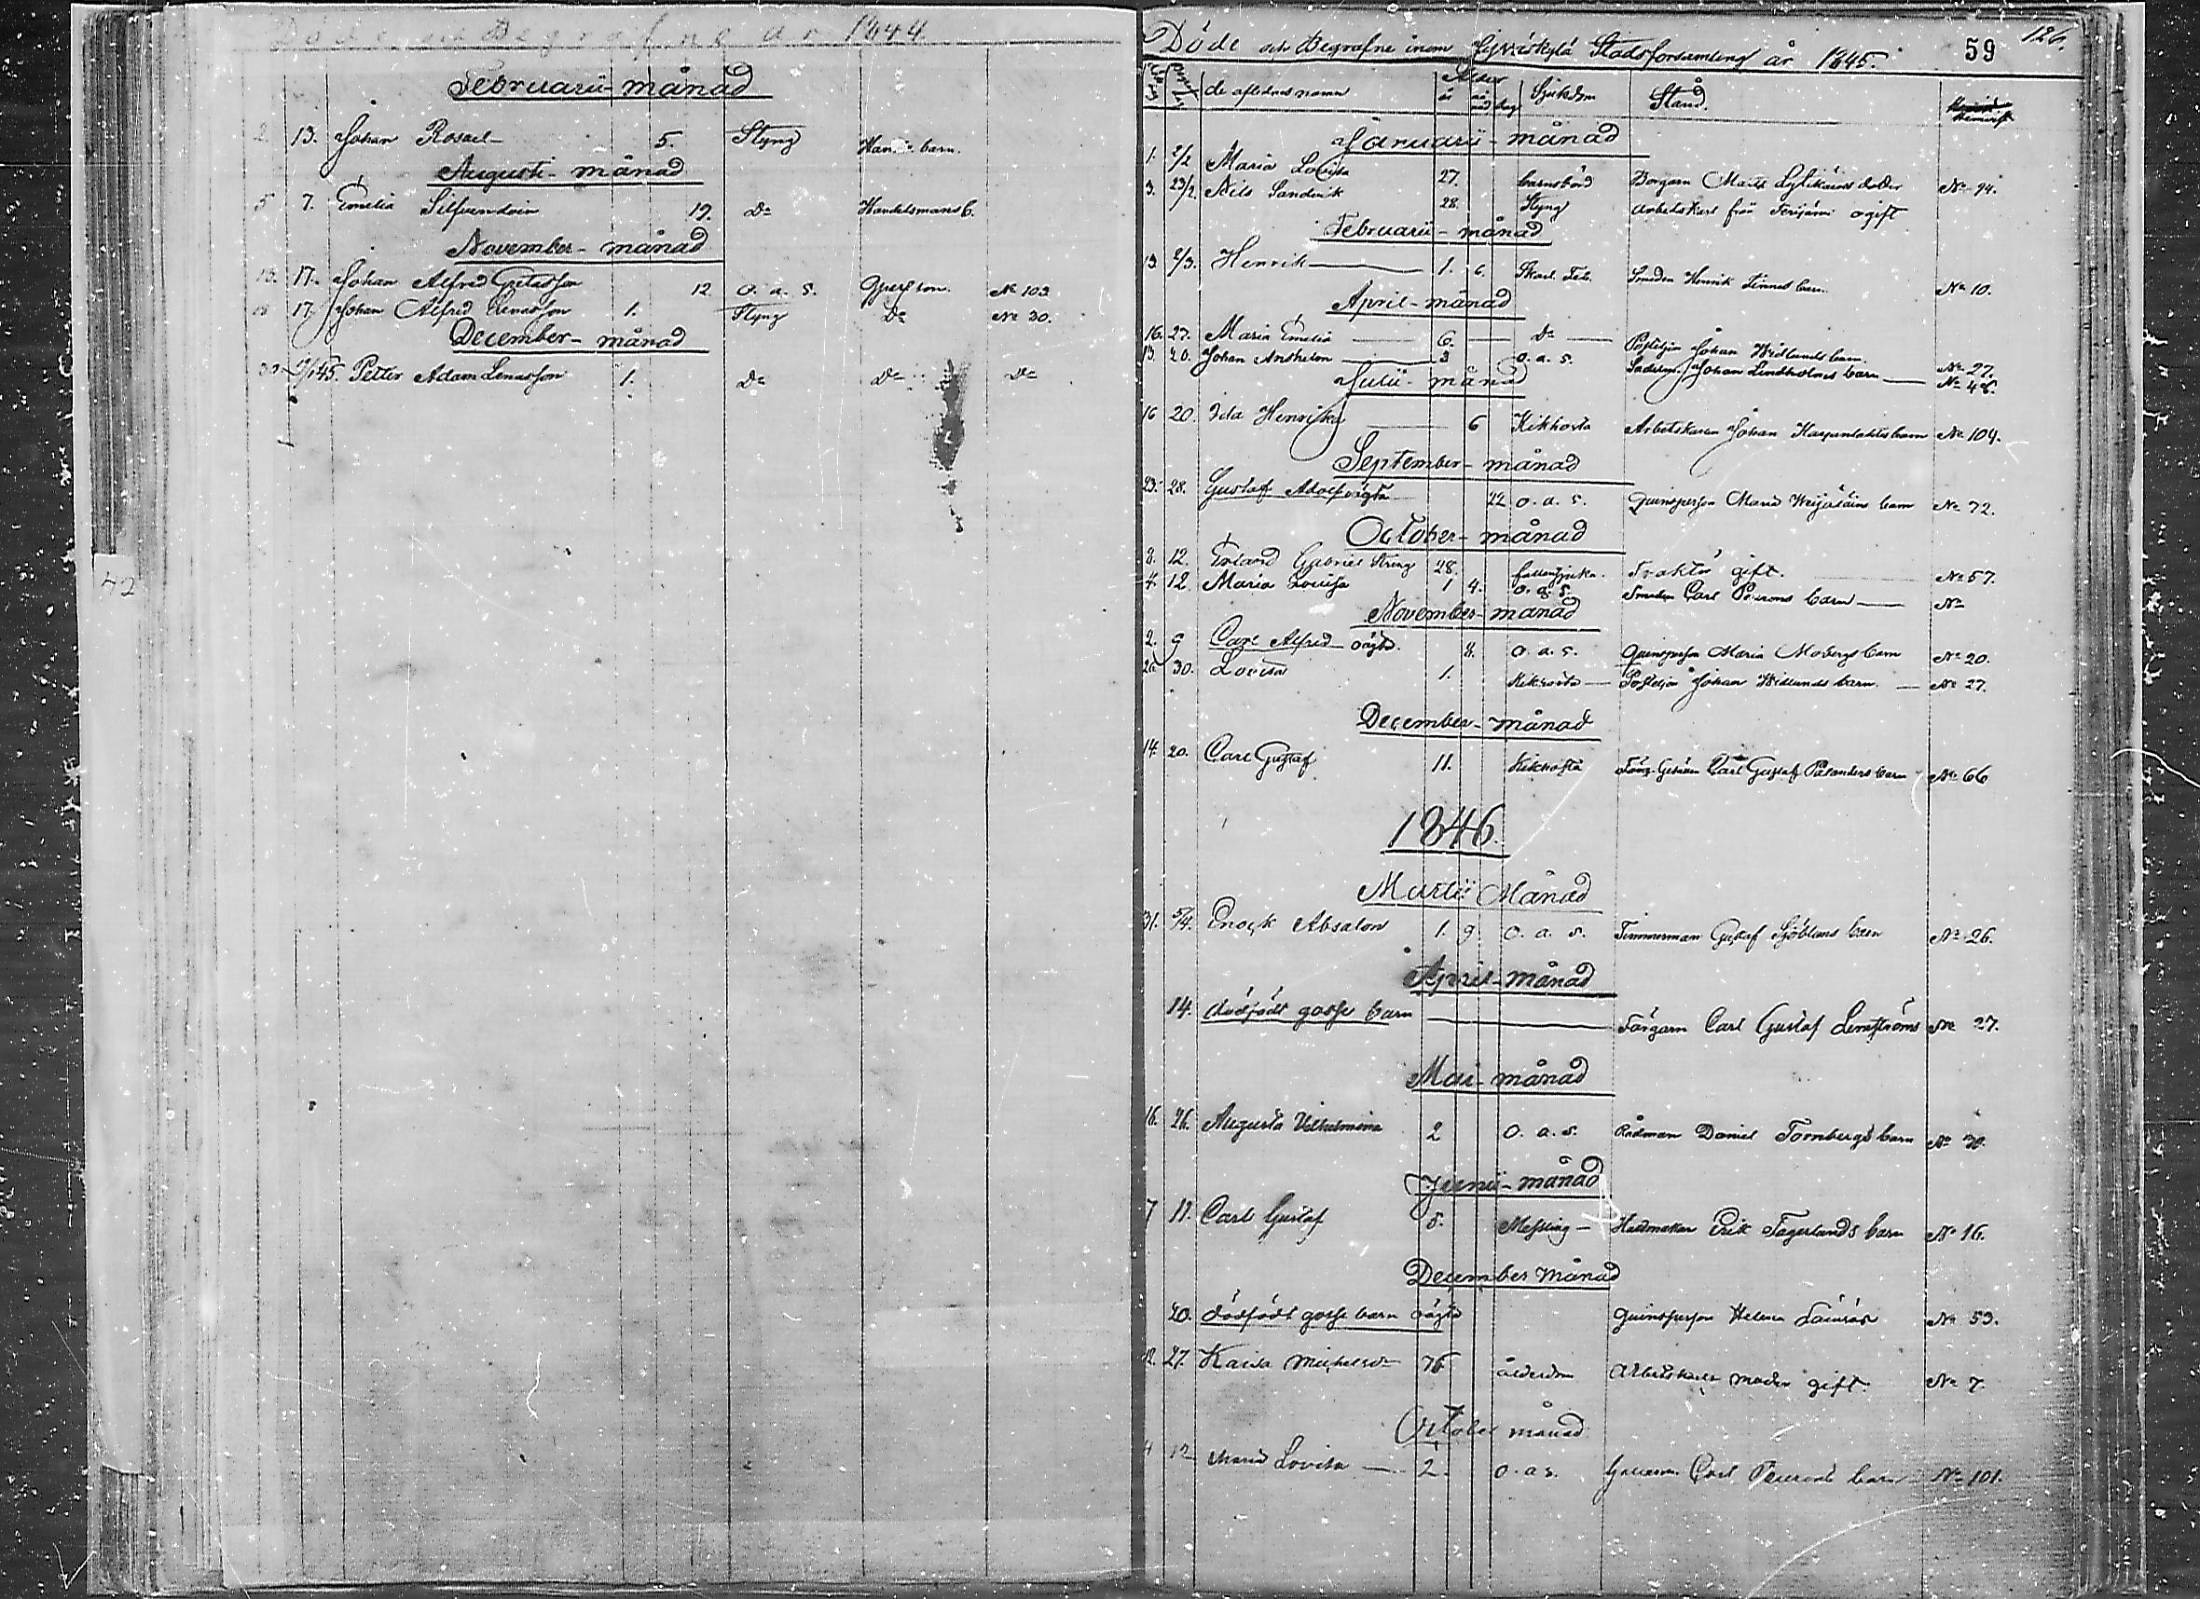 Döde och Begrafne år 1844
Februarii månad
2. 13. Johan Rosael 5. Styng barn.
Augusti månad
5 7. Emelia 19. Do Handelsmans b.
November månad
13. 17. Johan Alfred 12 o. a. s. Qperson. No 103
18 17. Johan Alfred 1. Styng Do No 30.
December månad
45. Petter Adam Lenasson 1. Do Do Do
42
126.
59
Döde och Begrafne inom Jyväskylä Stadsforsamling år 1845.
de aflednes namn Ålder Sjukdom Stånd.
år
Januarii månad
1. 2/2 Maria Lovisa 27. barnsbörd Borgarn dotter No 94.
3. 23/2. Nils Sandvik 28. Styng Arbetskarl från ogift
Februarii månad
13. 2/3. Henrik 1. 6. Skarl. Feb. Smeden Henrik barn No 10.
April månad
16. 27. Maria Emelia 6. Do Johan Widlunds barn No 27.
13. 20. Johan Anshelm 3 o. a. s. Johan Lindholms barn No 46.
Julii månad
16 20. Ida Henrika 6 Kikhosta Arbetskaren Johan barn No 104.
September månad
23. 28. Gustaf Adolf oägta 22 o. a. s. Quinsperson Maria barn No 72.
October månad
8. 12. Erland Gabriel 28. gift. No 57.
4. 12. Maria Lovisa 1 4. o. a. s. Smeden Carl barn No
November månad
2. 9 Carl Alfred oägta. 8. o. a. s. Quinsperson Maria Mobergs barn No 20.
26 30. Lovisa 1. Kikhosta Johan Widlunds barn. No 27.
December månad
14. 20. Carl Gustaf 11. Kikhosta Carl Gustaf Palanders barn No 66
1846.
Martii Månad
31. 5/4. Enock Absalon 1. 9. o. a. s. Timmerman Gustaf Sjöbloms barn No 26.
April månad
14. dödfödt gosse barn Färgarn Carl Gustaf Lenströms No 27.
Mai månad
16. 26. Augusta Vilhelmina 2 o. a. s. Rådman Daniel Tornbergs barn No 30.
Junii månad
7 11. Carl Gustaf 5. Messling Hattmakar Erik Fagerlunds barn No 16.
December månad
20. dödfödt gosse barn oägta Quinsperson Helena No 53.
12. 27. Kaisa 76 ålderdom Arbetskarls moder gift. No 7.
October månad
4 12 Maria Lovisa 2. o. a. s. Carl barn No 101.